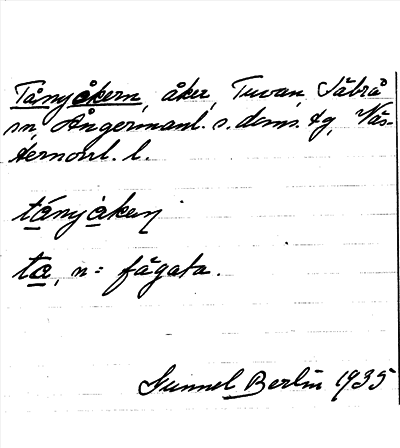 Tånyåkern, åker, Tuvan, Säbrå
sn, Ångermanl. s. doms. tg, Väs-
ternorrl. l.
tányàkeṇ
ta, n: fägata.
Gunnel Berlin 1935